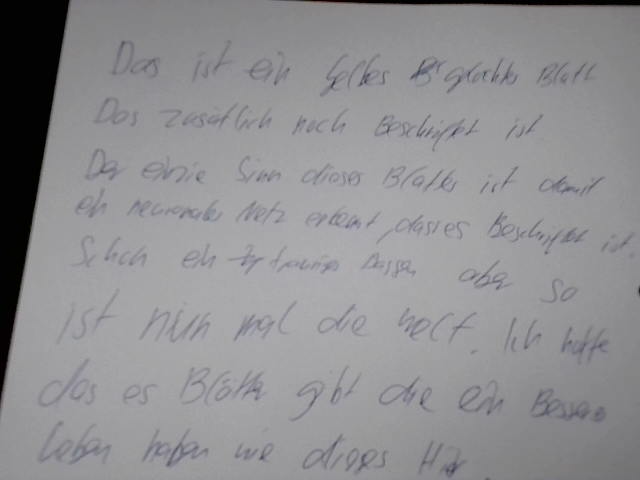 Das ist ein gelbes Blatt
Das zusätlich noch Beschriftet ist
Der einzie Sinn dieses Blattes ist damit
ein neuronales Netz erkennt, dass es Beschriftet ist.
Schon ein trauriges Dassen aber so
ist nun mal die Welt. Ich hoffe
das es Blätter gibt die ein Besseres
Leben haben wie dieses Hier.